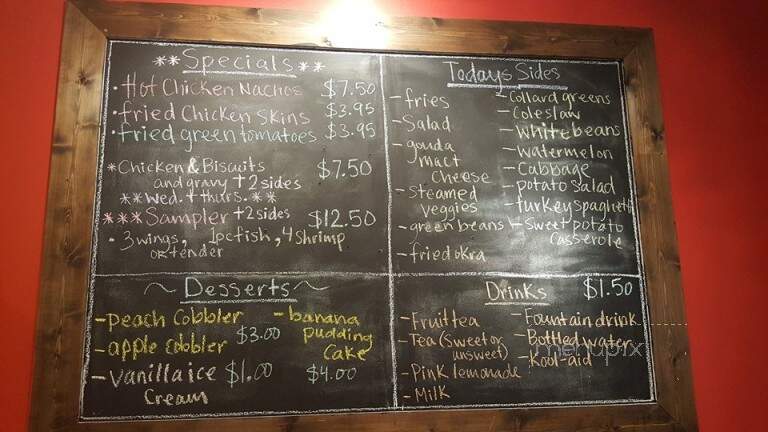 **Specials**
• Hot Chicken Nachos $7.50
• fried Chicken Skins $3.95
• fried green tomatoes $3.95
*Chicken & Biscuits $7.50
and gravy + 2 sides
**Wed. + thurs. **
***Sampler +2 sides $12.50
• 3 wings, 1pc fish, 4 shrimp
or tender
Todays Sides
- fries
- Salad
- gouda
mac t
Cheese
- steamed
veggies
- green beans
- fried okra
- Collard greens
- Coleslaw
- White beans
- watermelon
- Cabbage
- potato salad
- turkey spaghetti
- Sweet potato
casserole
~ Desserts ~
- peach Cobbler
- apple cobbler $3.00
- vanilla ice $1.00
Cream
- banana
pudding
Cake
$4.00
Drinks $1.50
- Fruit tea
- Tea (Sweet or
unsweet)
- Pink lemonade
- Milk
- Fountain drink
- Bottled water
- Kool-aid
menupix